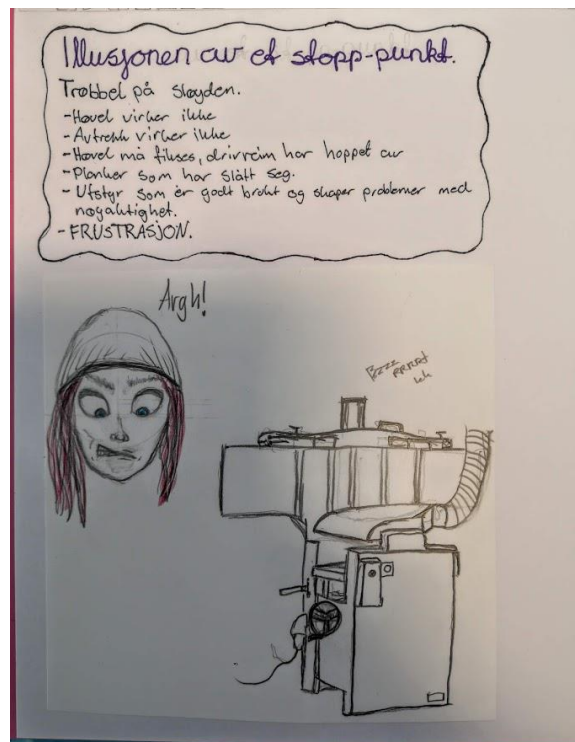 Illusjonen av et stopp-punkt.
Trøbbel på sløyden.
- Høvel virker ikke
- Avtrekk virker ikke
- Høvel må fikses, drivreim har hoppet av
- Planker som har slått seg.
- Utstyr som er godt brukt og skaper problemer med
nøyaktighet.
- FRUSTRASJON.
Argh!
Bzzz